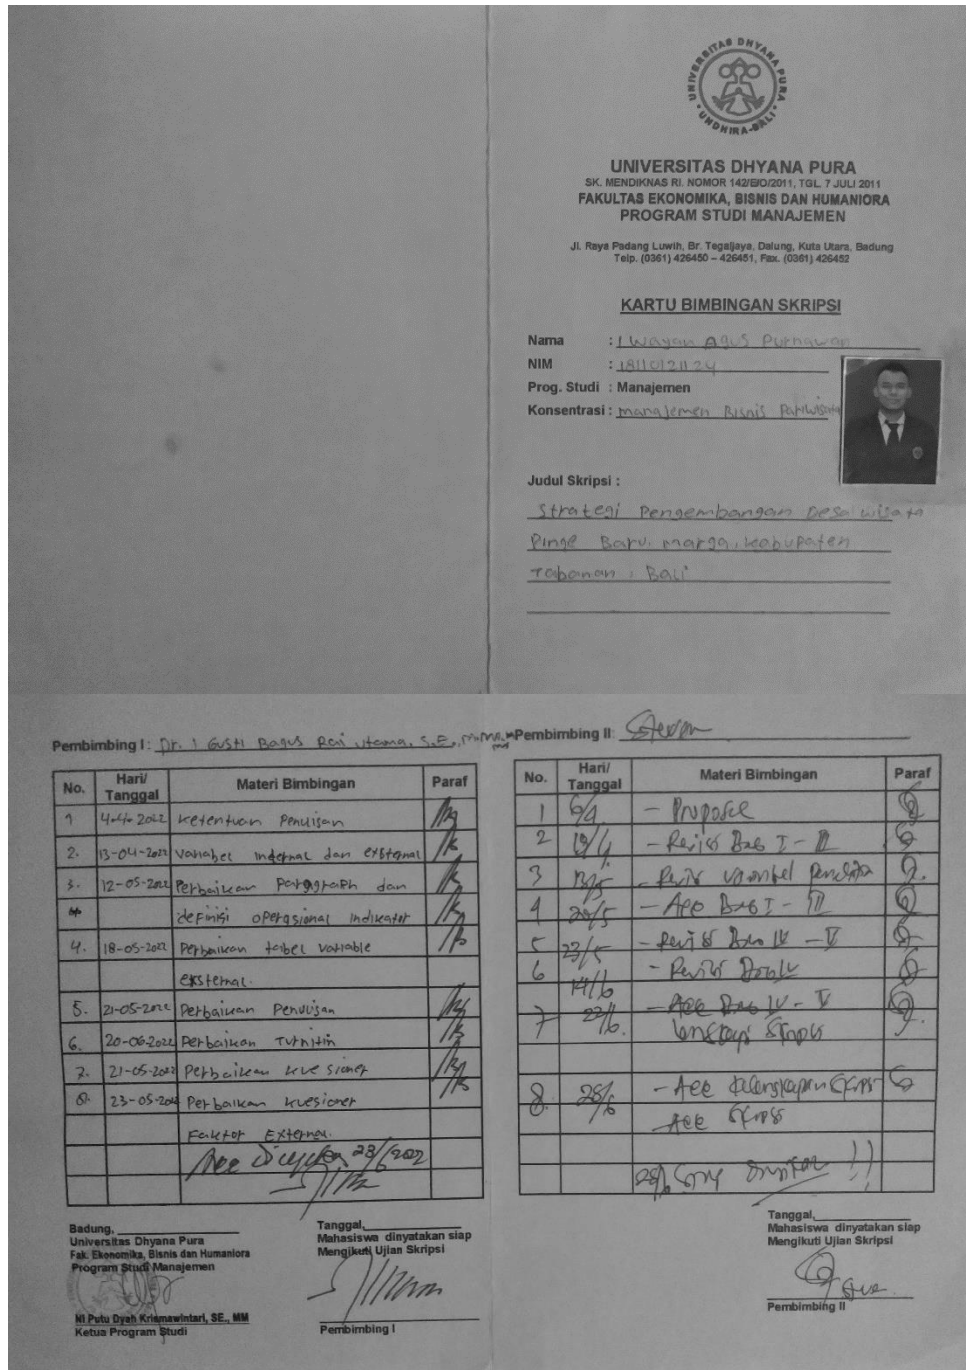 UNIVERSITAS DHYANA PURA
UNDHIRA-BALI
UNIVERSITAS DHYANA PURA
SK. MENDIKNAS RI. NOMOR 142/E/O/2011, TGL. 7 JULI 2011
FAKULTAS EKONOMIKA, BISNIS DAN HUMANIORA
PROGRAM STUDI MANAJEMEN
Jl. Raya Padang Luwih, Br. Tegaljaya, Dalung, Kuta Utara, Badung
Telp. (0361) 426450 – 426451, Fax. (0361) 426452
KARTU BIMBINGAN SKRIPSI
Nama : I Wayan Agus Purnawan
NIM : 18110121124
Prog. Studi : Manajemen
Konsentrasi : Manajemen Bisnis Pariwisata
Judul Skripsi :
Strategi Pengembangan Desa Wisata
Pinge Baru, Marga, Kabupaten
Tabanan, Bali
Pembimbing I : Dr. I Gusti Bagus Rai Utama, S.E.,
No. Hari/Tanggal Materi Bimbingan Paraf
1 4-4-2022 Ketentuan Penulisan
2. 13-04-2022 Variabel internal dan eksternal
3. 12-05-2022 Perbaikan Paragraph dan
definisi operasional indikator
4. 18-05-2022 Perbaikan tabel variable
eksternal.
5. 21-05-2022 Perbaikan Penulisan
6. 20-06-2022 Perbaikan Turnitin
7. 21-05-2022 Perbaikan kuesioner
8. 23-05-2022 Perbaikan kuesioner
Faktor External.
23/6/2022
Badung,
Universitas Dhyana Pura
Fak. Ekonomika, Bisnis dan Humaniora
Program Studi Manajemen
Ni Putu Dyah Krismawintari, SE., MM
Ketua Program Studi
Tanggal,
Mahasiswa dinyatakan siap
Mengikuti Ujian Skripsi
Pembimbing I
Pembimbing II:
No. Hari/Tanggal Materi Bimbingan Paraf
1 6/4 - Proposal
2 19/4 - Revisi Bab I - III
3 13/5 - Revisi variabel
4 20/5 - Acc Bab I - III
5 23/5 - Revisi Bab IV - V
6 14/6 - Revisi Bab IV
7 22/6. - Acc Bab IV - V
Lengkapi Skripsi
8. 28/6 - Acc Kelengkapan Skripsi
- Acc Skripsi
28/6
Tanggal,
Mahasiswa dinyatakan siap
Mengikuti Ujian Skripsi
Pembimbing II